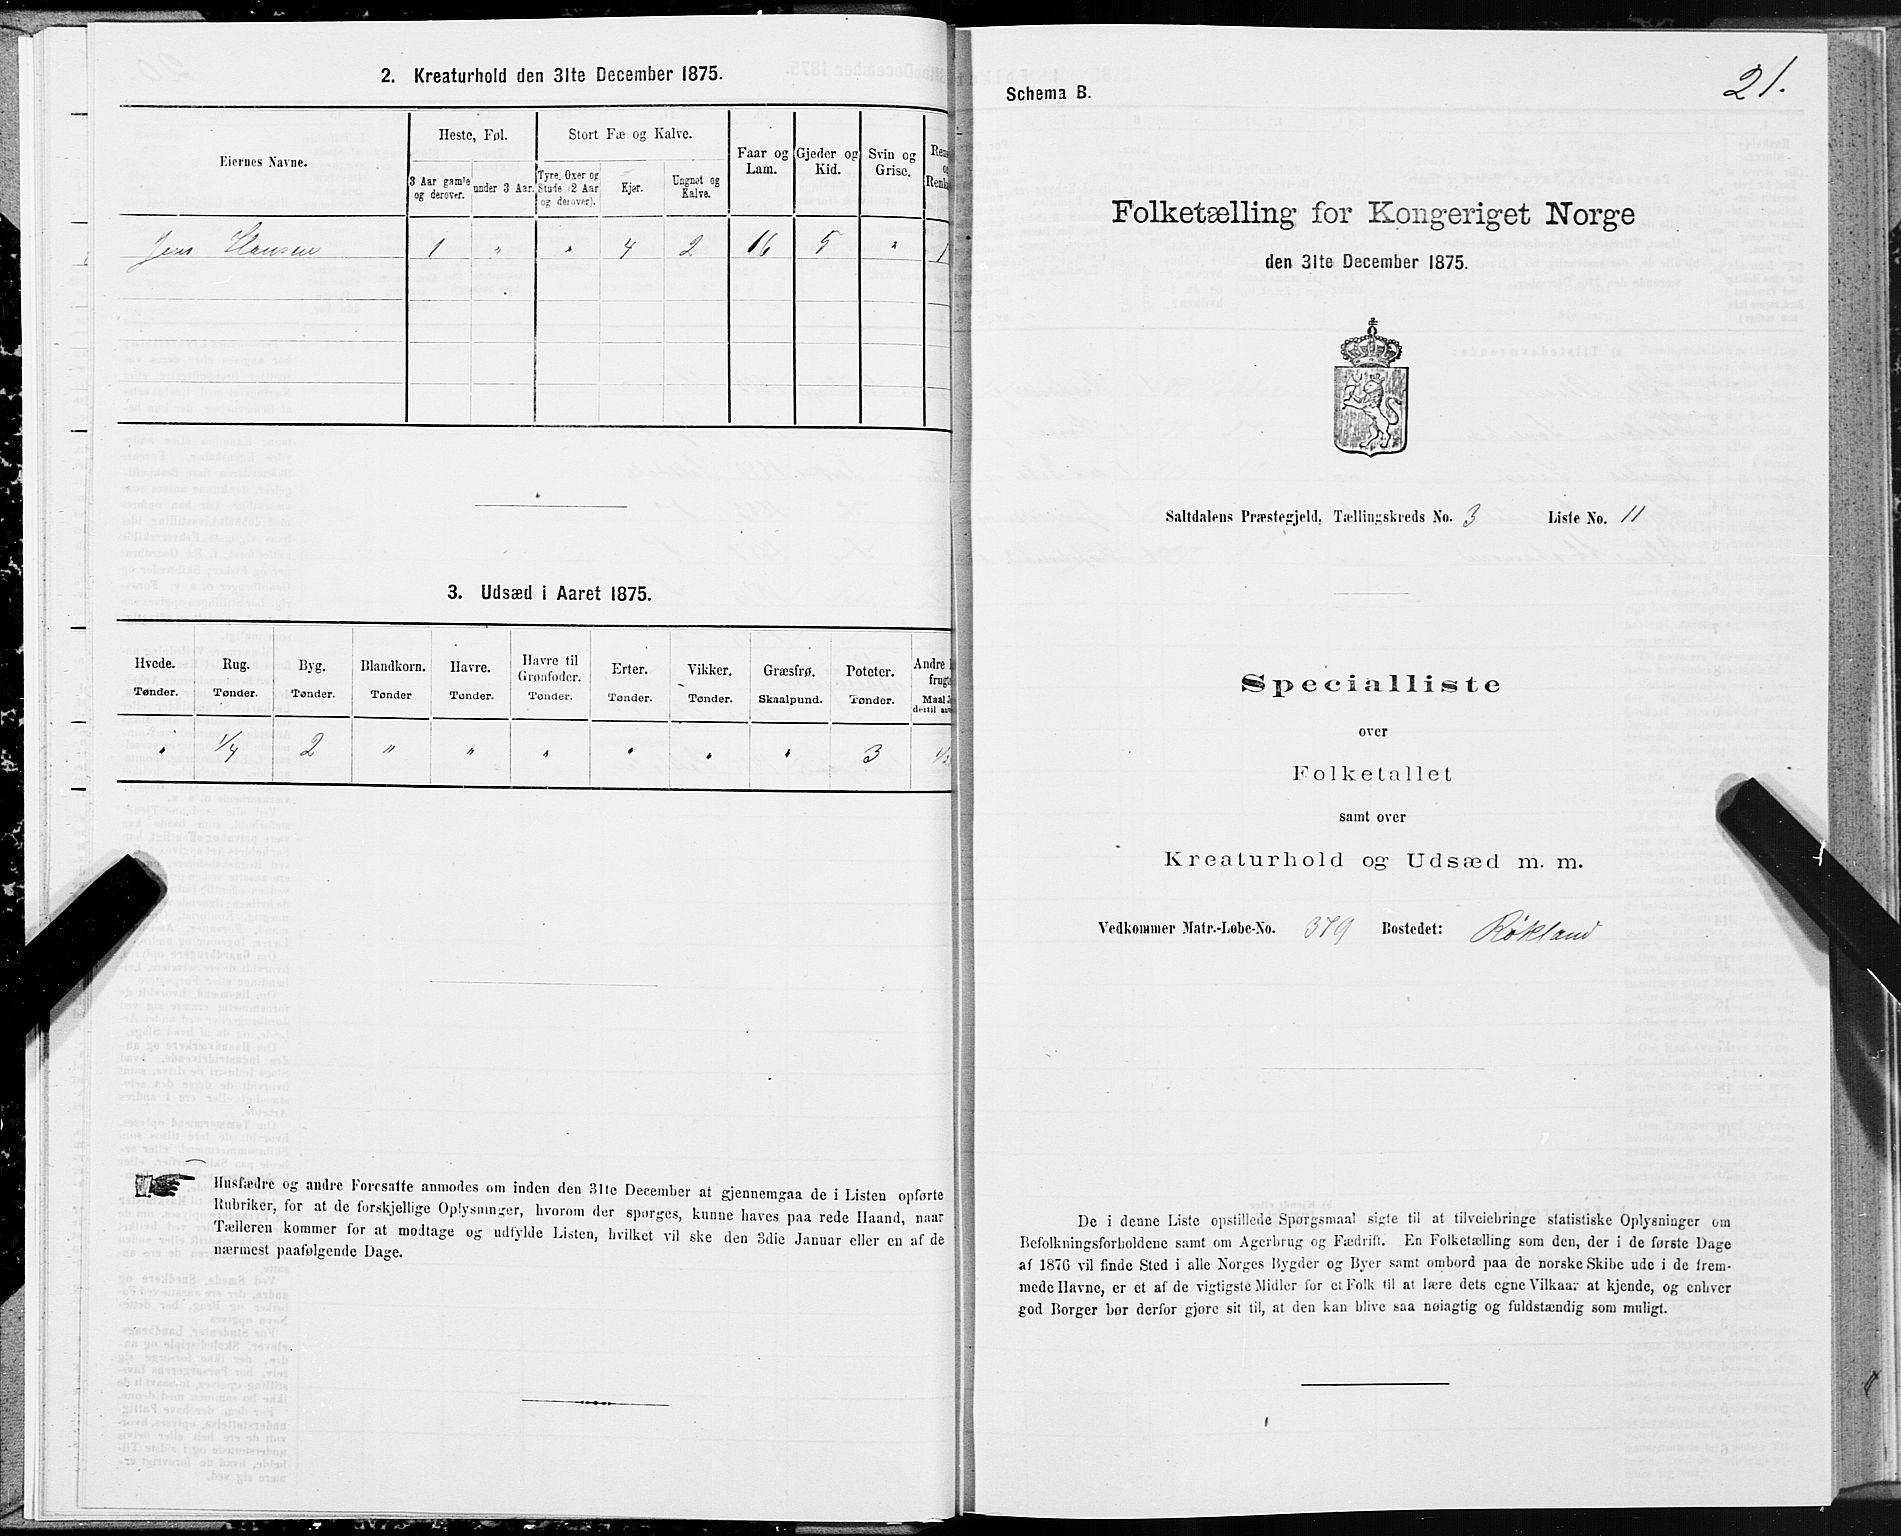 2. Kreaturhold den 31te December 1875.
Eiernes Navne.
Heste, Føl.
Stort Fæ og Kalve.
Faar og Lam.
Gjeder og Kid.
Svin og Grise.
3 Aar gamle og derover.
under 3 Aar.
Tyre, Oxer og Stude (2 Aar og derover).
Kjør.
Ungnøt og Kalve.
Jens Hansen 1 " " 4 2 16 5 " 1
3. Udsæd i Aaret 1875.
Hvede. Rug. Byg. Blandkorn. Havre. Havre til Grønfoder. Erter. Vikker. Græsfrø. Poteter. Andre
Tønder. Tønder. Tønder. Tønder Tønder. Tønder. Tønder. Tønder. Skaalpund. Tønder. Maal
" 1/4 2 " " " " " " 3 1/2
Husfædre og andre Foresatte anmodes om inden den 31te December at gjennemgaa de i Listen opførte
Rubriker, for at de forskjellige Oplysninger, hvorom der spørges, kunne haves paa rede Haand, naar
Tælleren kommer for at modtage og udfylde Listen, hvilket vil ske den 3die Januar eller en af de
nærmest paafølgende Dage.
21.
Schema B.
Folketælling for Kongeriget Norge
den 31te December 1875.
Saltdalens Præstegjeld, Tællingskreds No. 3 Liste No. 11
Specialliste
over
Folketallet
samt over
Kreaturhold og Udsæd m. m.
Vedkommer Matr.-Løbe-No. 379 Bostedet: Røkland
De i denne Liste opstillede Spørgsmaal sigte til at tilveiebringe statistiske Oplysninger om
Befolkningsforholdene samt om Agerbrug og Fædrift. En Folketælling som den, der i de første Dage
af 1876 vil finde Sted i alle Norges Bygder og Byer samt ombord paa de norske Skibe ude i de frem-
mede Havne, er et af de vigtigste Midler for et Folk til at lære dets egne Vilkaar at kjende, og enhver
god Borger bør derfor gjøre sit til, at den kan blive saa nøiagtig og fuldstændig som muligt.